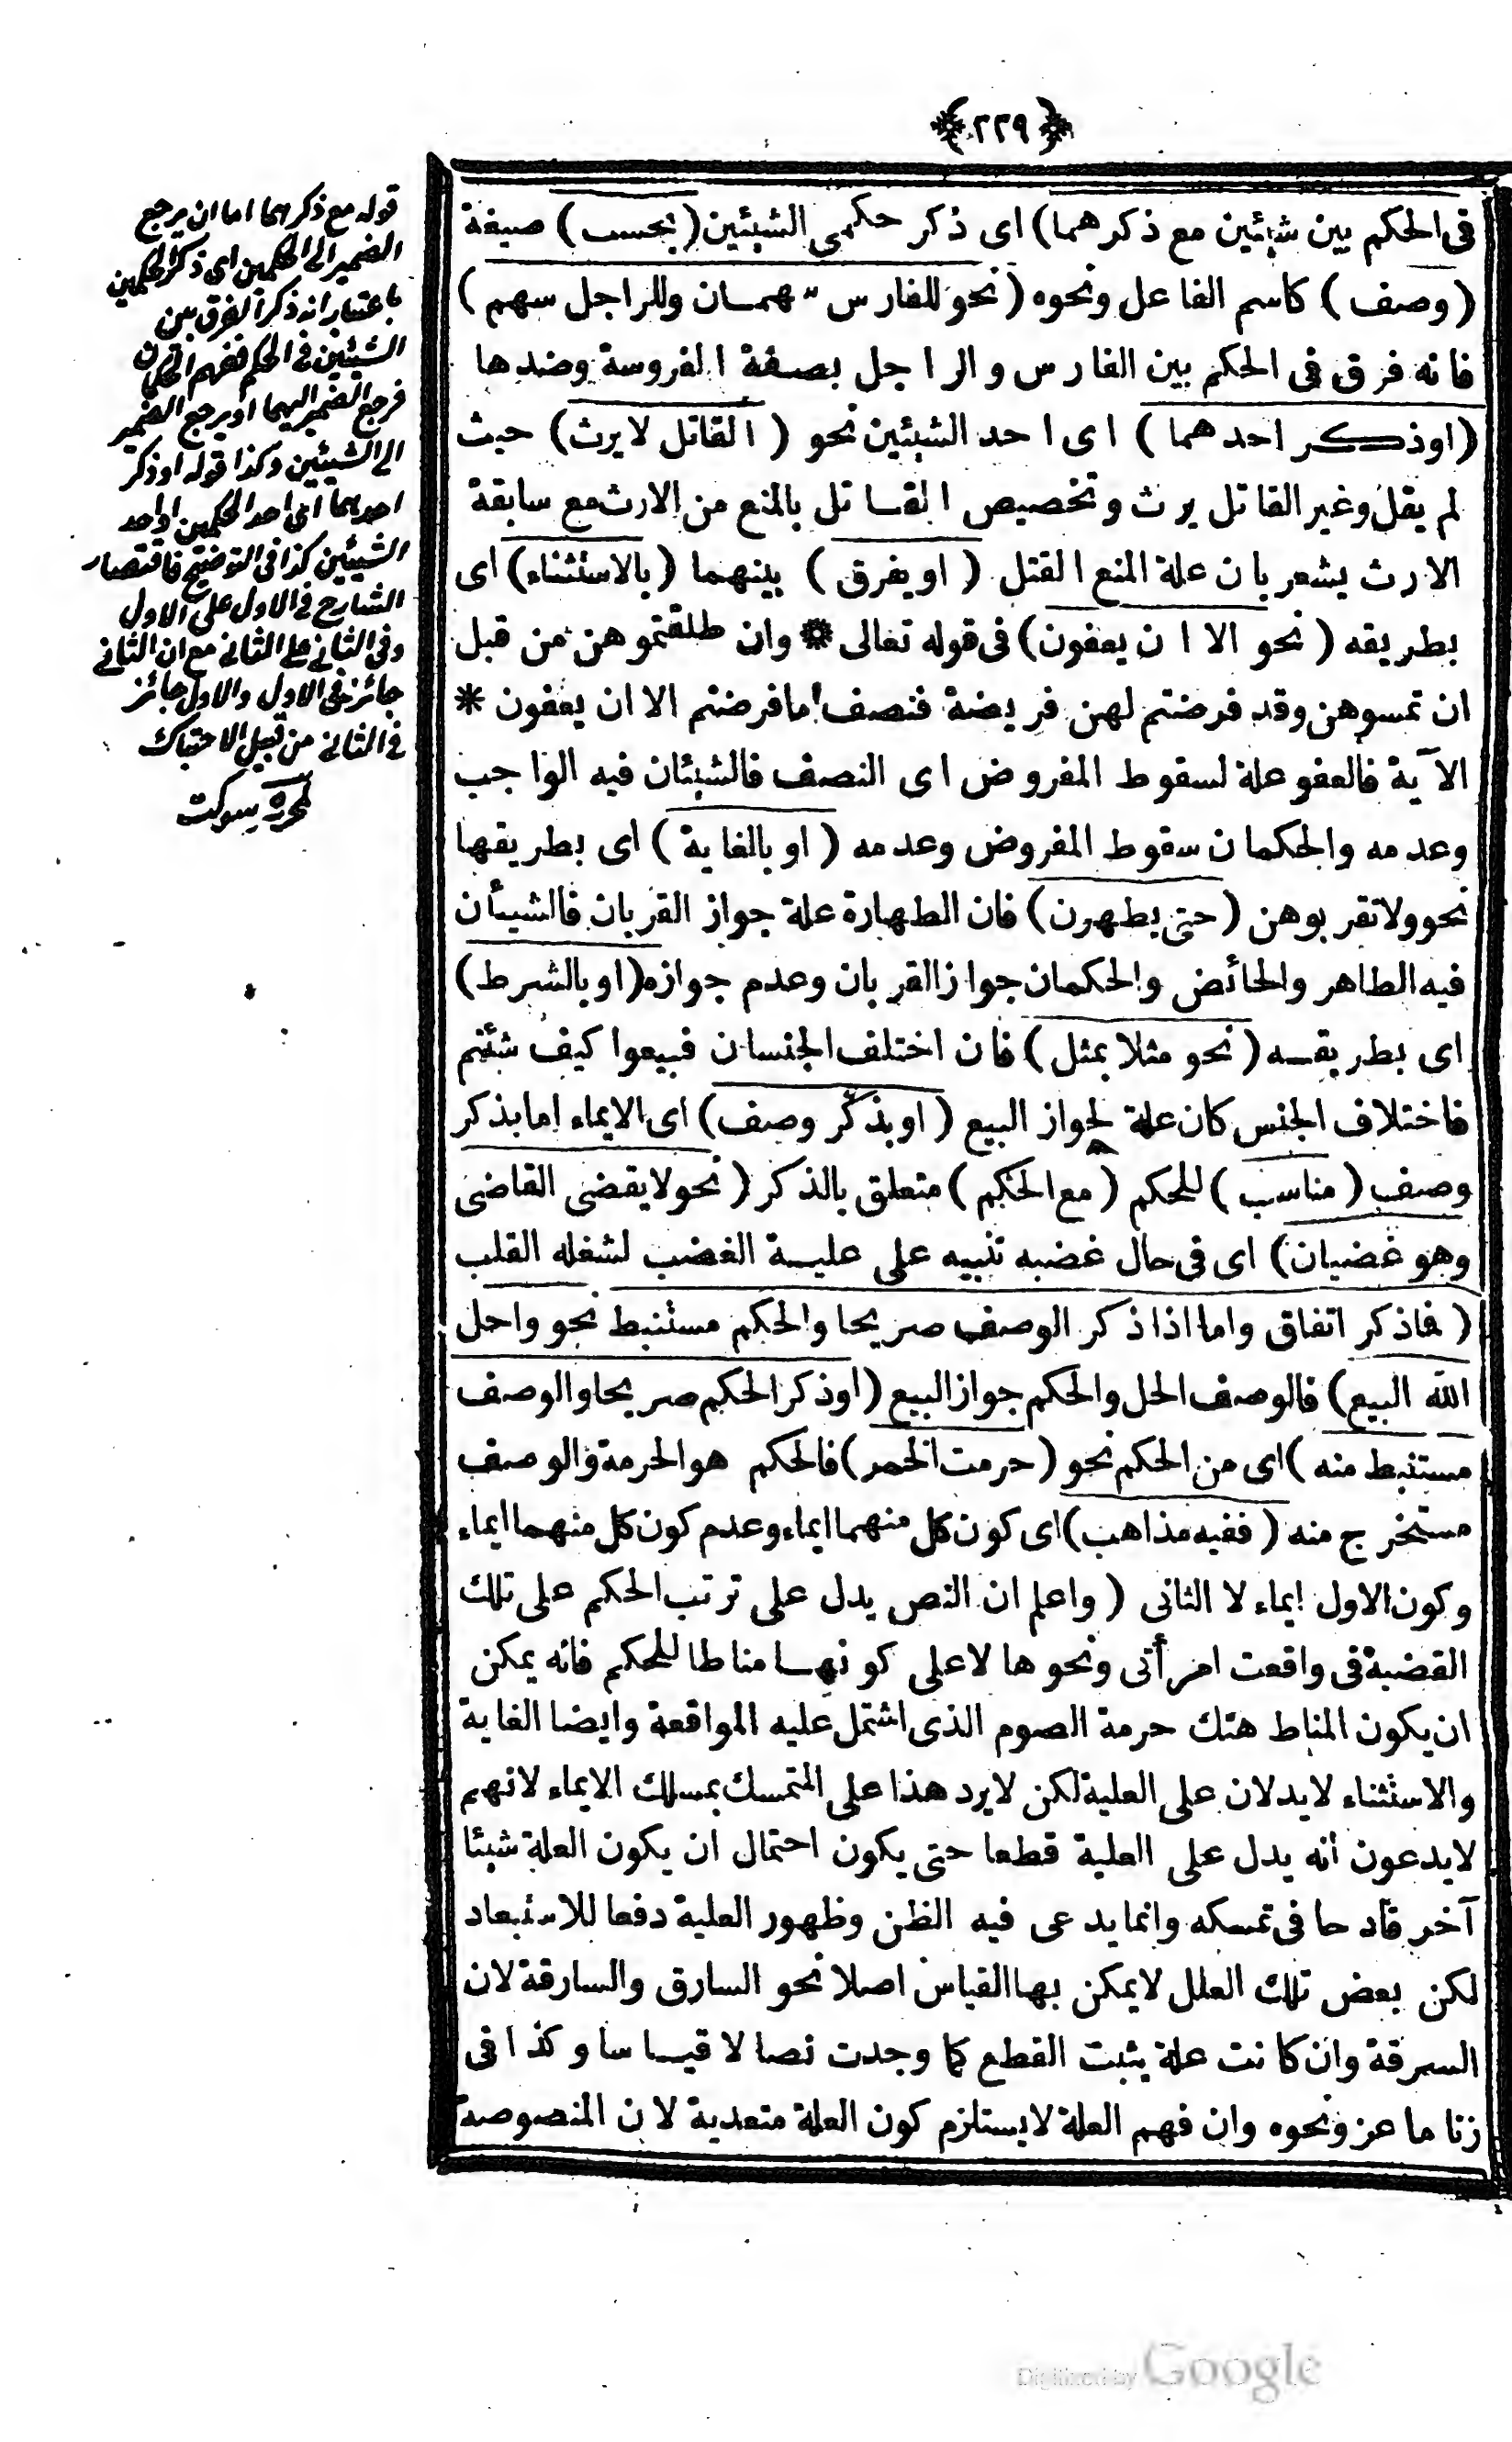 ﴿٢٢٩﴾
فى الحكم بين شيئين مع ذكرهما) اى ذكر حكمى الشيئين (بحسب) صيغة
(وصف) كاسم الفاعل ونحوه (نحو للفارس سهمان وللراجل سهم)
فانه فرق فى الحكم بين الفارس والراجل بصفة الفروسة وضدها
(اوذكر احدهما) اى احد الشيئين نحو (القاتل لايرث) حيث
لم يقل وغير القاتل يرث وتخصيص القاتل بالمنع من الارث مع سابقة
الارث يشعر بان علة المنع القتل (اويفرق) بينهما (بالاستثناء) اى
بطريقه (نحو الا ان يعفون) فى قوله تعالى * وان طلقتموهن من قبل
ان تمسوهن وقد فرضتم لهن فريضة فنصف ما فرضتم الا ان يعفون *
الآية فالعفو علة لسقوط المفروض اى النصف فالشيئان فيه الواجب
وعدمه والحكمان سقوط المفروض وعدمه (اوبالغاية) اى بطريقها
نحو ولاتقربوهن (حتى يطهرن) فان الطهارة علة جواز القربان فالشيأن
فيه الطاهر والحائض والحكمان جواز القربان وعدم جوازه (اوبالشرط)
اى بطريقه (نحو مثلا بمثل) فان اختلف الجنسان فبيعوا كيف شئتم
فاختلاف الجنس كان علة لجواز البيع (اوبذكر وصف) اى الايماء اما بذكر
وصف (مناسب) للحكم (مع الحكم) متعلق بالذكر (نحو لايقضى القاضى
وهو غضبان) اى فى حال غضبه تنبيه على علية الغضب لشغله القلب
(فاذكر اتفاق واما اذا ذكر الوصف صريحا والحكم مستنبط نحو واحل
الله البيع) فالوصف الحل والحكم جواز البيع (اوذكر الحكم صريحا والوصف
مستنبط منه) اى من الحكم نحو (حرمت الخمر) فالحكم هو الحرمة والوصف
مستخرج منه (ففيه مذاهب) اى كون كل منهما ايماء وعدم كون كل منهما ايماء
وكون الاول ايماء لا الثانى (واعلم ان النص يدل على ترتب الحكم على تلك
القضية فى واقعت امرأتى ونحوها لا على كونها مناطا للحكم فانه يمكن
ان يكون المناط هتك حرمة الصوم الذى اشتمل عليه المواقعة وايضا الغاية
والاستثناء لايدلان على العلية لكن لايرد هذا على المتمسك بمسلك الايماء لانهم
لايدعون انه يدل على العلية قطعا حتى يكون احتمال ان يكون العلة شيئا
آخر قادحا فى تمسكه وانما يدعى فيه الظن وظهور العلية دفعا للاستبعاد
لكن بعض تلك العلل لايمكن بها القياس اصلا نحو السارق والسارقة لان
السرقة وان كانت علة يثبت القطع كما وجدت نصا لا قياسا وكذا فى
زنا ماعز ونحوه وان فهم العلة لايستلزم كون العلة متعدية لان المنصوصة
قوله مع ذكرهما اما ان يرجع
الضمير الى الحكمين اى ذكر الحكمين
باعتبار انه ذكر الفرق بين
الشيئين فى الحكم ففهم الحكمان
فرجع الضمير اليهما او يرجع الضمير
الى الشيئين وكذا قوله او ذكر
احدهما اى احد الحكمين او احد
الشيئين كذا فى التوضيح فاقتصار
الشارح فى الاول على الاول
وفى الثانى على الثانى مع ان الثانى
جائز فى الاول والاول جائز
فى الثانى من قبيل الاحتباك
Digitized by Google